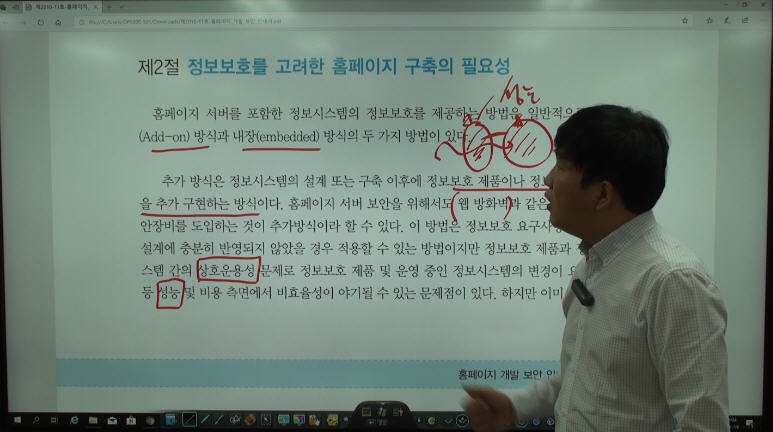 제2010-11호-홈페이지_
file:///C:/Users/
제2절 정보보호를 고려한 홈페이지 구축의 필요성
성능
홈페이지 서버를 포함한 정보시스템의 정보보호를 제공하는 방법은 일반적으
(Add-on) 방식과 내장(embedded) 방식의 두 가지 방법이 있다.
추가 방식은 정보시스템의 설계 또는 구축 이후에 정보보호 제품이나 정보
을 추가 구현하는 방식이다. 홈페이지 서버 보안을 위해서도 웹 방화벽과 같은
안장비를 도입하는 것이 추가방식이라 할 수 있다. 이 방법은 정보보호 요구사
설계에 충분히 반영되지 않았을 경우 적용할 수 있는 방법이지만 정보보호 제품과
스템 간의 상호운용성 문제로 정보보호 제품 및 운영 중인 정보시스템의 변경이
등 성능 및 비용 측면에서 비효율성이 야기될 수 있는 문제점이 있다. 하지만 이미
홈페이지 개발 보안 안